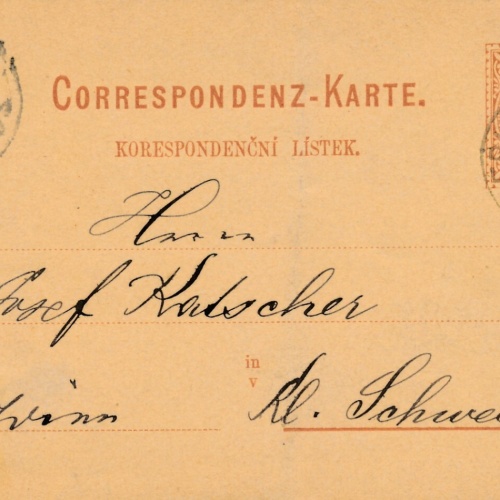 CORRESPONDENZ-KARTE.
KORESPONDENČNÍ LÍSTEK.
Herrn
Josef Katscher
in
v
Kl. Schwe